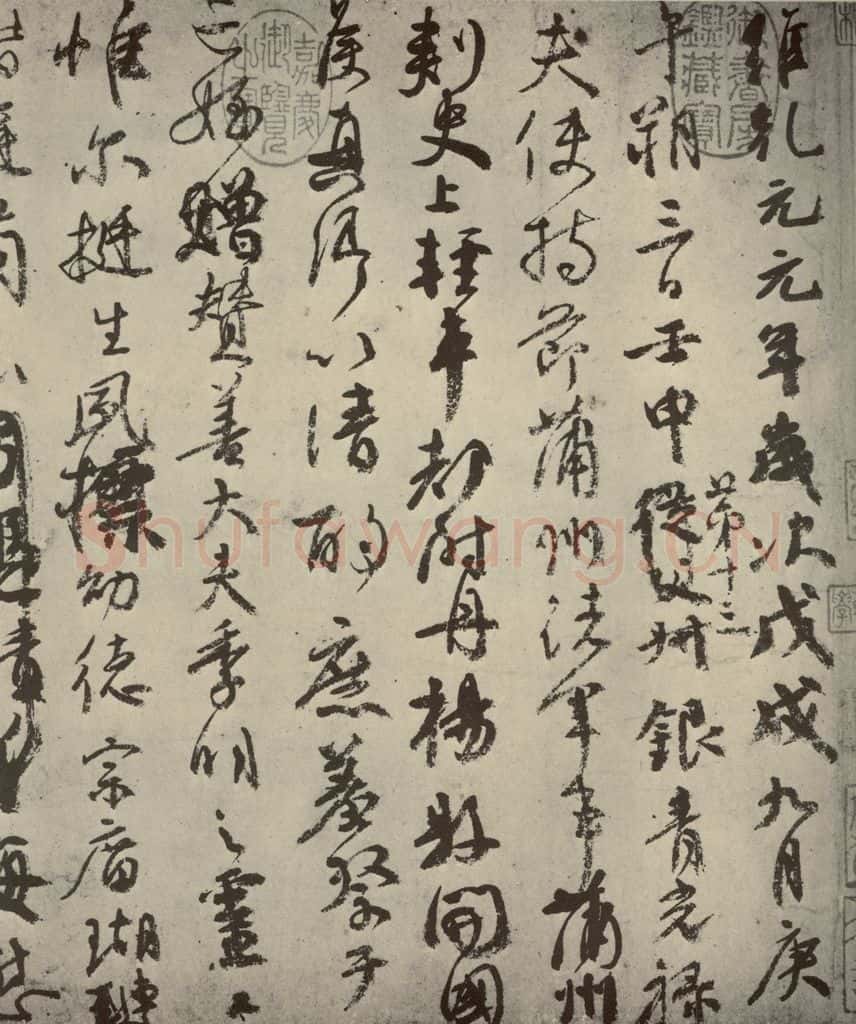 維乾元元年歲次戊戌九月庚
午朔三日壬申第十三從父叔銀青光祿
夫使持節蒲州諸軍事蒲州
刺史上輕車都尉丹楊縣開國
侯真卿以清酌庶羞祭于
亡姪贈贊善大夫季明之靈曰
惟爾挺生夙標幼德宗廟瑚璉
每慰
嘉慶御覽之寶
御書房鑑藏寶
Shufawang.CN